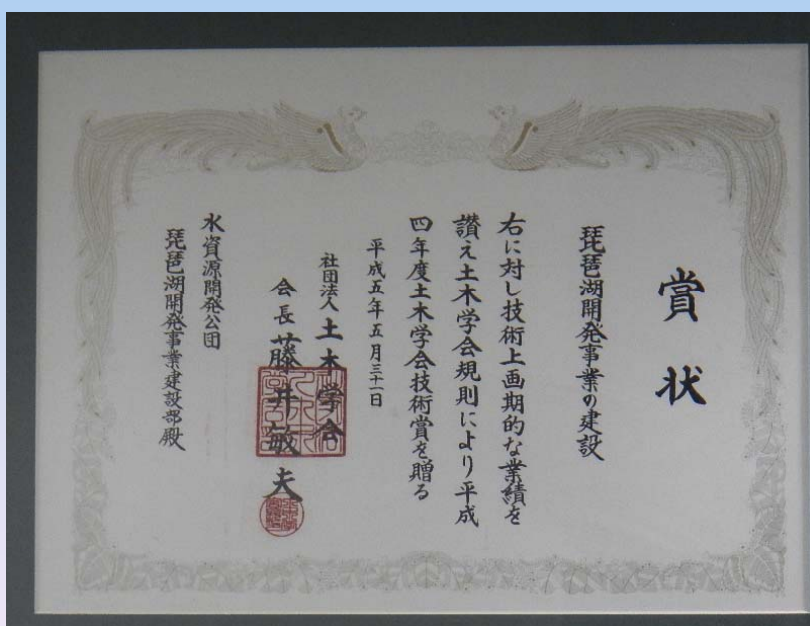 賞状
琵琶湖開発事業の建設
右に対し技術上画期的な業績を
讃え土木学会規則により平成
四年度土木学会技術賞を贈る
平成五年五月三十一日
社団法人土木学会
会長藤井敏夫
水資源開発公団
琵琶湖開発事業建設部殿